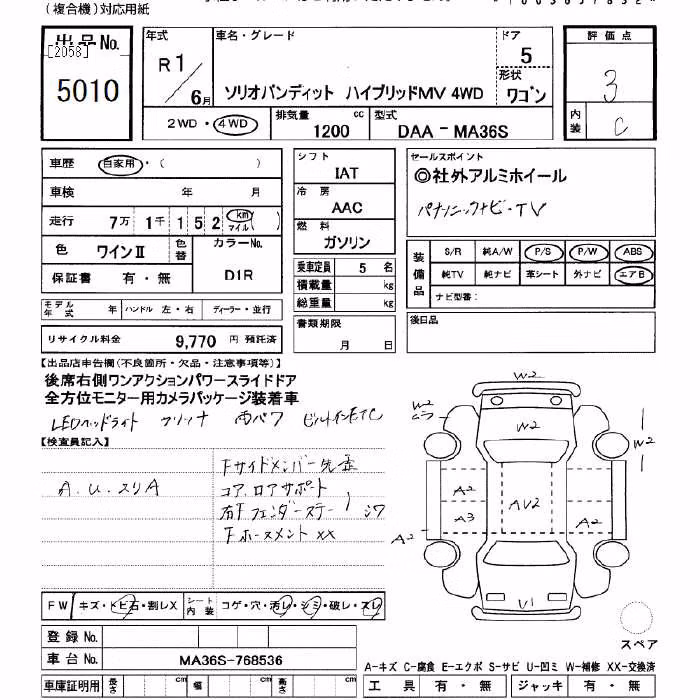 (複合機)対応用紙
出品No.
[2058]
5010
年式
R1/6月
車名・グレード
ソリオバンディット ハイブリッドMV 4WD
ドア
5
形状
ワゴン
評価点
3
内装
C
2WD・4WD
排気量
1200 cc
型式
DAA-MA36S
車歴
自家用・( )
車検 年 月
走行 7万 1千 1 5 2 km マイル( )
色 ワインⅡ
色替
カラーNo.
D1R
保証書 有・無
モデル年式 年
ハンドル 左・右
ディーラー・並行
リサイクル料金 9,770 円 預託済
シフト
IAT
冷房
AAC
燃料
ガソリン
乗車定員 5 名
積載量 kg
総重量 kg
書類期限
月 日
セールスポイント
◎社外アルミホイール
パナソニックナビ・TV
装備品
S/R 純A/W P/S P/W ABS
純TV 純ナビ 革シート 外ナビ エアB
ナビ型番:
後日品
【出品店申告欄(不良箇所・欠品・注意事項等)】
後席右側ワンアクションパワースライドドア
全方位モニター用カメラパッケージ装着車
LEDヘッドライト フリップ 両パワ ビルトインETC
【検査員記入】
A.U.スリA
Fサイドメンバー先歪
コア.ロアサポート
右Fフェンダーステー シワ
Fホースメント XX
W2
W2
W2
W2
A2
A3
A2
AV2
A2
V1
スペア
FW キズ・トビ石・割レX
シート内装 コゲ・穴・汚レ・シミ・破レ・スレ
登録No.
車台No. MA36S-768536
車庫証明用 長さ cm 幅 cm 高さ cm
A-キズ C-腐食 E-エクボ S-サビ U-凹ミ W-補修 XX-交換済
工具 有・無 ジャッキ 有・無